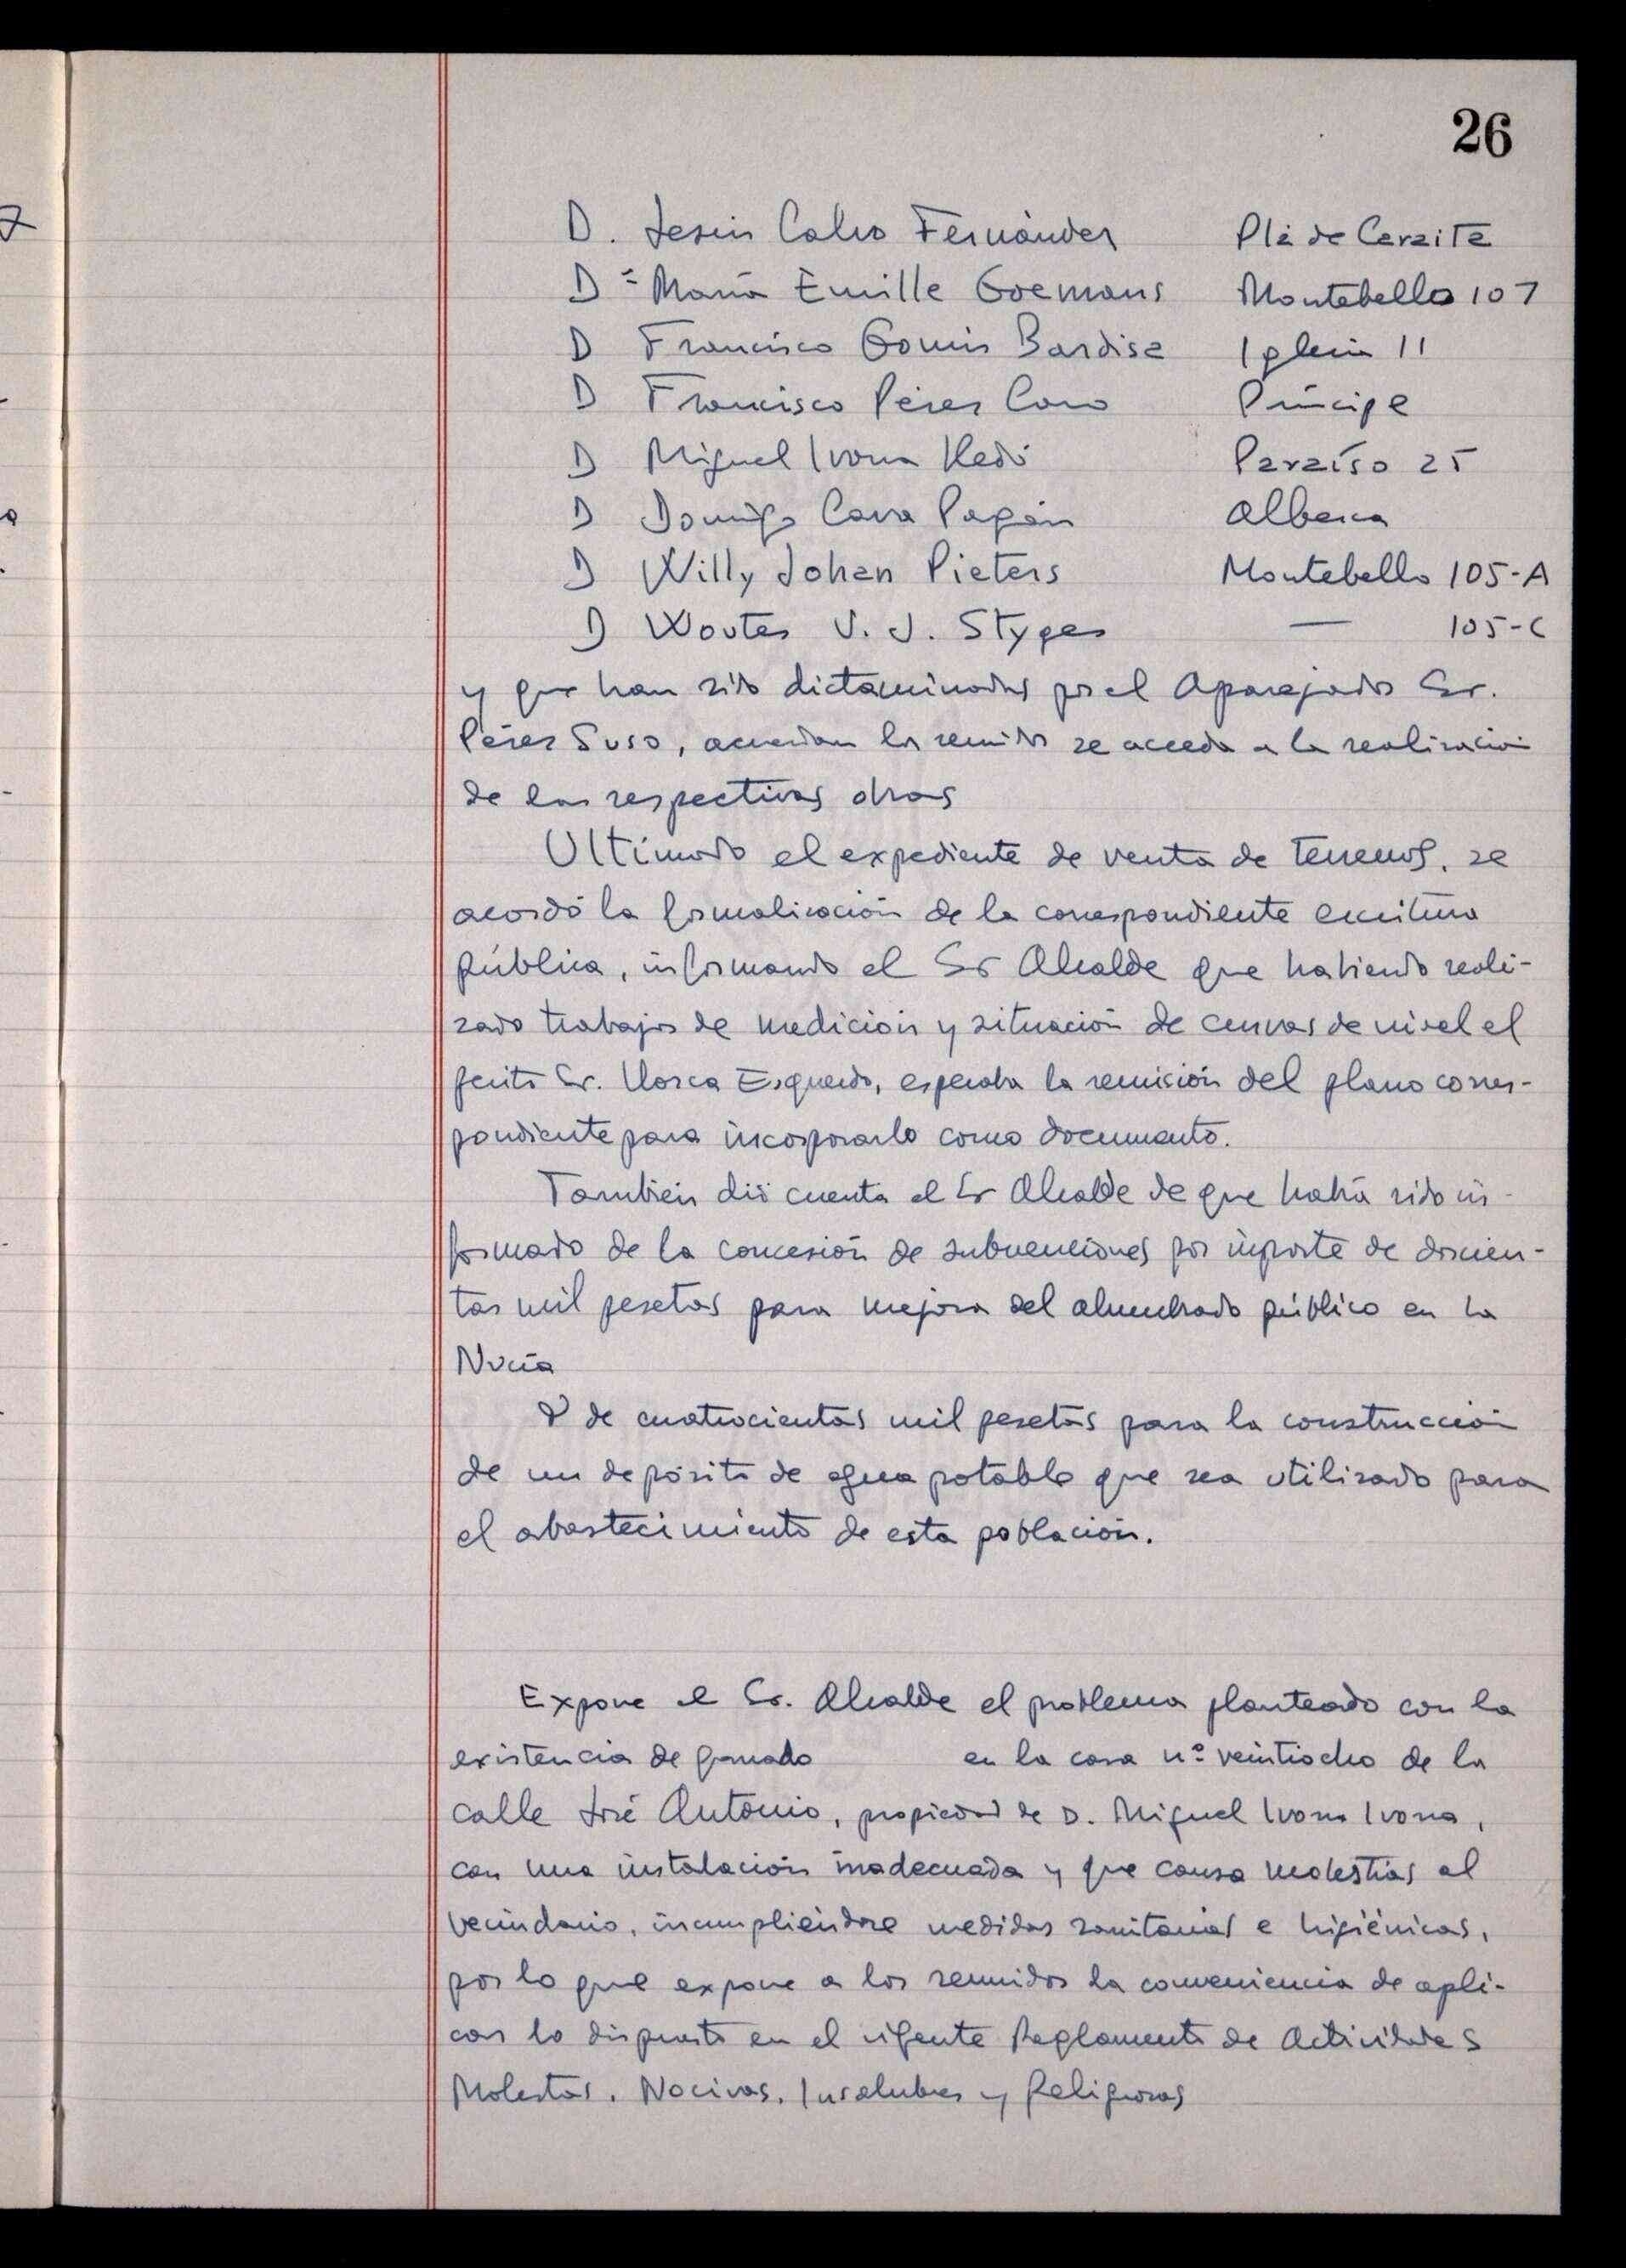 26
D. Jesús Calvo Fernández Plà de Caraita
Dª María Emille Goemans Montebello 107
D Francisco Gomis Bardisa Iglesia 11
D Francisco Pérez Caro Príncipe
D Miguel Ivorra Lledó Paraíso 25
D Domingo Cava Pagán Alberca
D Willy Johan Pieters Montebello 105-A
D Wouter V. J. Styger — 105-C
y que han sido dictaminadas por el Aparejador Sr.
Pérez Suso, acuerdan los reunidos se acceda a la realización
de las respectivas obras
Ultimado el expediente de venta de terrenos, se
acordó la formalización de la correspondiente escritura
pública, informando el Sr Alcalde que habiendo reali-
zado trabajos de medición y situación de curvas de nivel el
perito Sr. Llorca Esquerdo, esperaba la remisión del plano corres-
pondiente para incorporarlo como documento.
También dió cuenta el Sr Alcalde de que había sido in-
formado de la concesión de subvenciones por importe de doscien-
tas mil pesetas para mejora del alumbrado público en La
Nucía
Y de cuatrocientas mil pesetas para la construcción
de un depósito de agua potable que sea utilizado para
el abastecimiento de esta población.
Expone el Sr. Alcalde el problema planteado con la
existencia de ganado en la casa nº veintiocho de la
calle José Antonio, propiedad de D. Miguel Ivorra Ivorra,
con una instalación inadecuada y que causa molestias al
vecindario, incumpliéndose medidas sanitarias e higiénicas,
por lo que expone a los reunidos la conveniencia de apli-
car lo dispuesto en el vigente Reglamento de Actividades
Molestas, Nocivas, Insalubres y Peligrosas